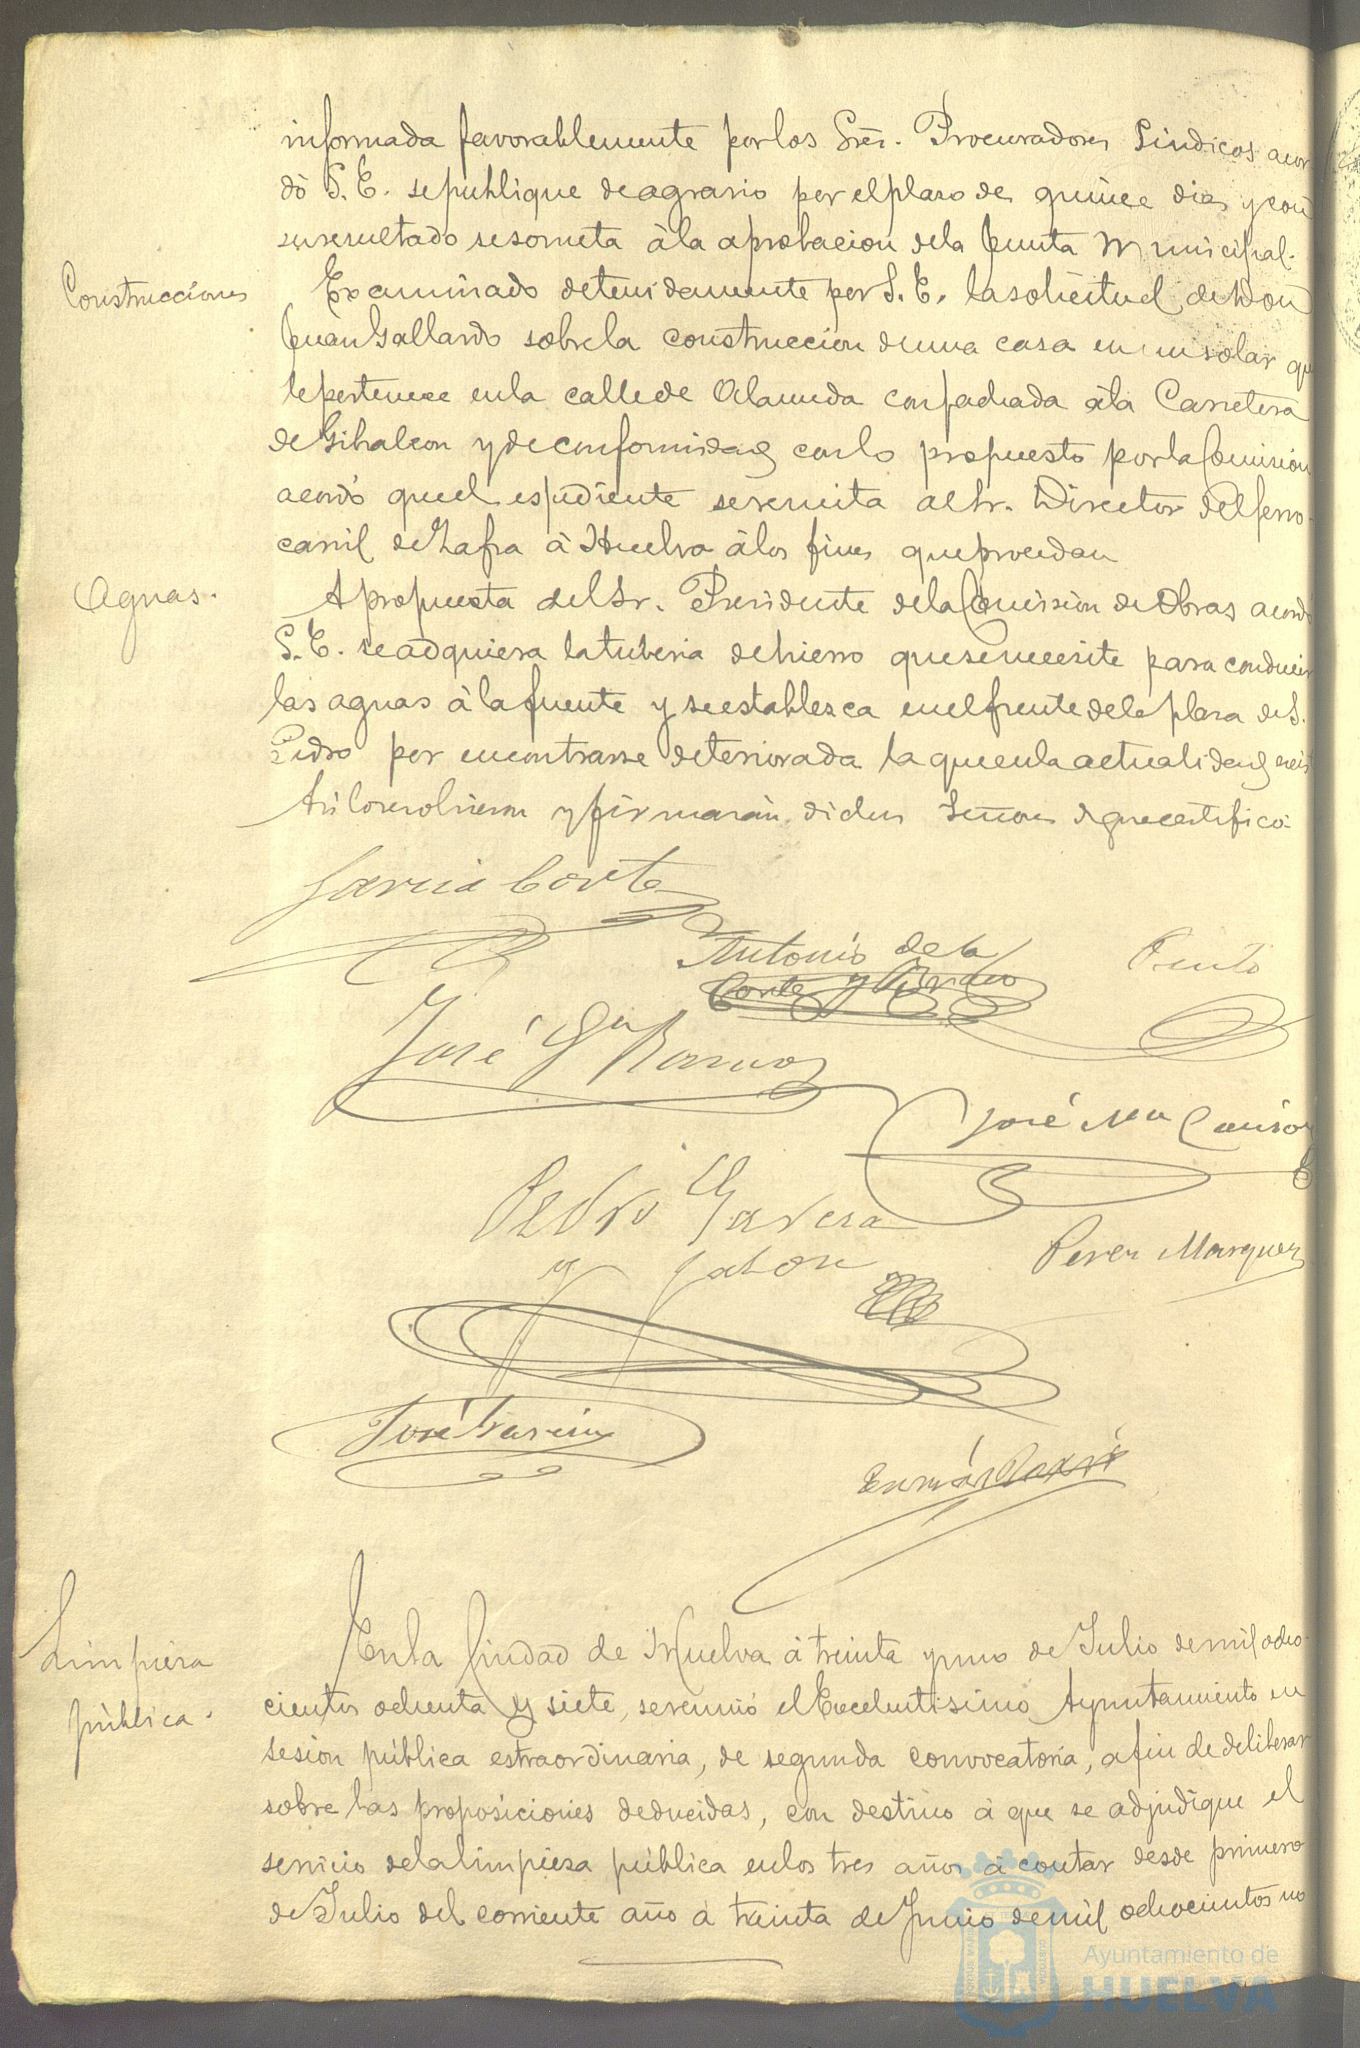 informada favorablemente por los Sres. Procuradores Sindicos acor
dó S. E. se publique de agravio por el plazo de quince dias y con
su resultado se someta à la aprobacion de la Junta Municipal.
Construcciones
Examinado detenidamente por S. E. la solicitud de Don
Juan Gallardo sobre la construccion de una casa en un solar qu
le pertenece en la calle de Alameda con fachada à la Carretera
de Gibraleon y de conformidad con lo propuesto por la Comision
acordó que el espediente se remita al Sr. Director del ferro
carril de Zafra à Huelva à los fines que procedan
Aguas.
A propuesta del Sr. Presidente de la Comision de Obras acord
S. E. se adquiera la tuberia de hierro que se necesite para conducir
las aguas à la fuente y se establezca en el frente de la plaza de S.
Pedro por encontrarse deteriorada la que en la actualidad exis
Asi lo resolvieron y firmarán dichos Señores de que certifico
Garcia Corte
Antonio de la
Corte y
Pinto
José Gª Ramos
José Mª
Pedro Garcia
y Jalon
Perez Marquez
José Garcia
Limpieza
pública.
En la Ciudad de Huelva à treinta y uno de Julio de mil ocho
cientos ochenta y siete, se reunió el Excelentisimo Ayuntamiento en
sesion pública estraordinaria, de segunda convocatoria, a fin de deliberar
sobre las proposiciones deducidas, con destino á que se adjudique el
servicio de la limpieza pública en los tres años à contar desde primero
de Julio del corriente año à treinta de Junio de mil ochocientos no
Ayuntamiento de
HUELVA